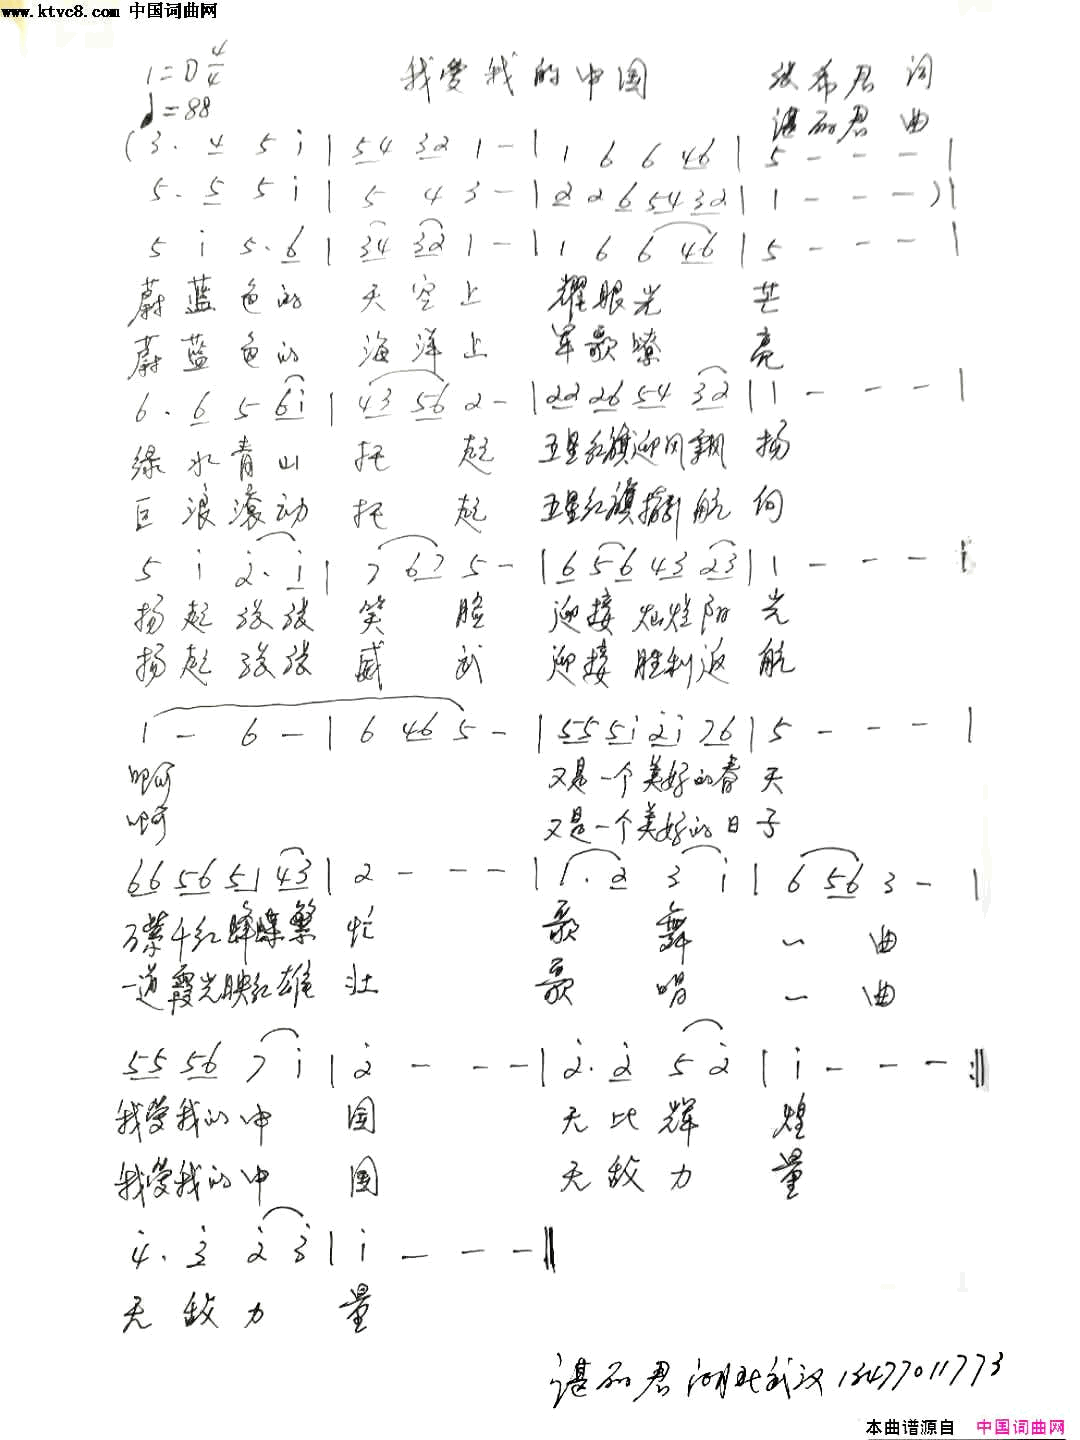 www.ktvc8.com 中国词曲网
1=D 4/4 我爱我的中国 张希君 词
♩=88 谌丽君 曲
(3. 4 5 i | 54 32 1 - | 1 6 6 46 | 5 - - - |
5. 5 5 i | 5 4 3 - | 2 2 6 54 32 | 1 - - - )|
5 i 5. 6 | 34 32 1 - | 1 6 6 46 | 5 - - - |
蔚蓝色的 天空上 耀眼光 芒
蔚蓝色的 海洋上 军歌嘹 亮
6. 6 5 6i | 43 56 2 - | 22 26 54 32 | 1 - - - |
绿水青山 托 起 五星红旗迎风飘 扬
巨浪滚动 托 起 五星红旗指引航 向
5 i 2. i | 7 67 5 - | 6 5 6 43 23 | 1 - - - |
扬起张张 笑 脸 迎接灿烂阳 光
扬起张张 威 武 迎接胜利返 航
1 - 6 - | 6 46 5 - | 55 5i 2i 76 | 5 - - - |
啊 又是一个美好的春 天
啊 又是一个美好的日 子
66 56 51 43 | 2 - - - | 1. 2 3 i | 6 56 3 - |
万紫千红蜂蝶繁 忙 歌 舞 一 曲
一道霞光映红雄 壮 高 唱 一 曲
55 56 7 i | 2 - - - | 2. 2 5 2 | i - - - :‖
我爱我的中 国 无比辉 煌
我爱我的中 国 无敌力 量
4. 3 2 3 | i - - - ‖
无敌力 量
谌丽君 湖北武汉 13477011773
本曲谱源自 中国词曲网